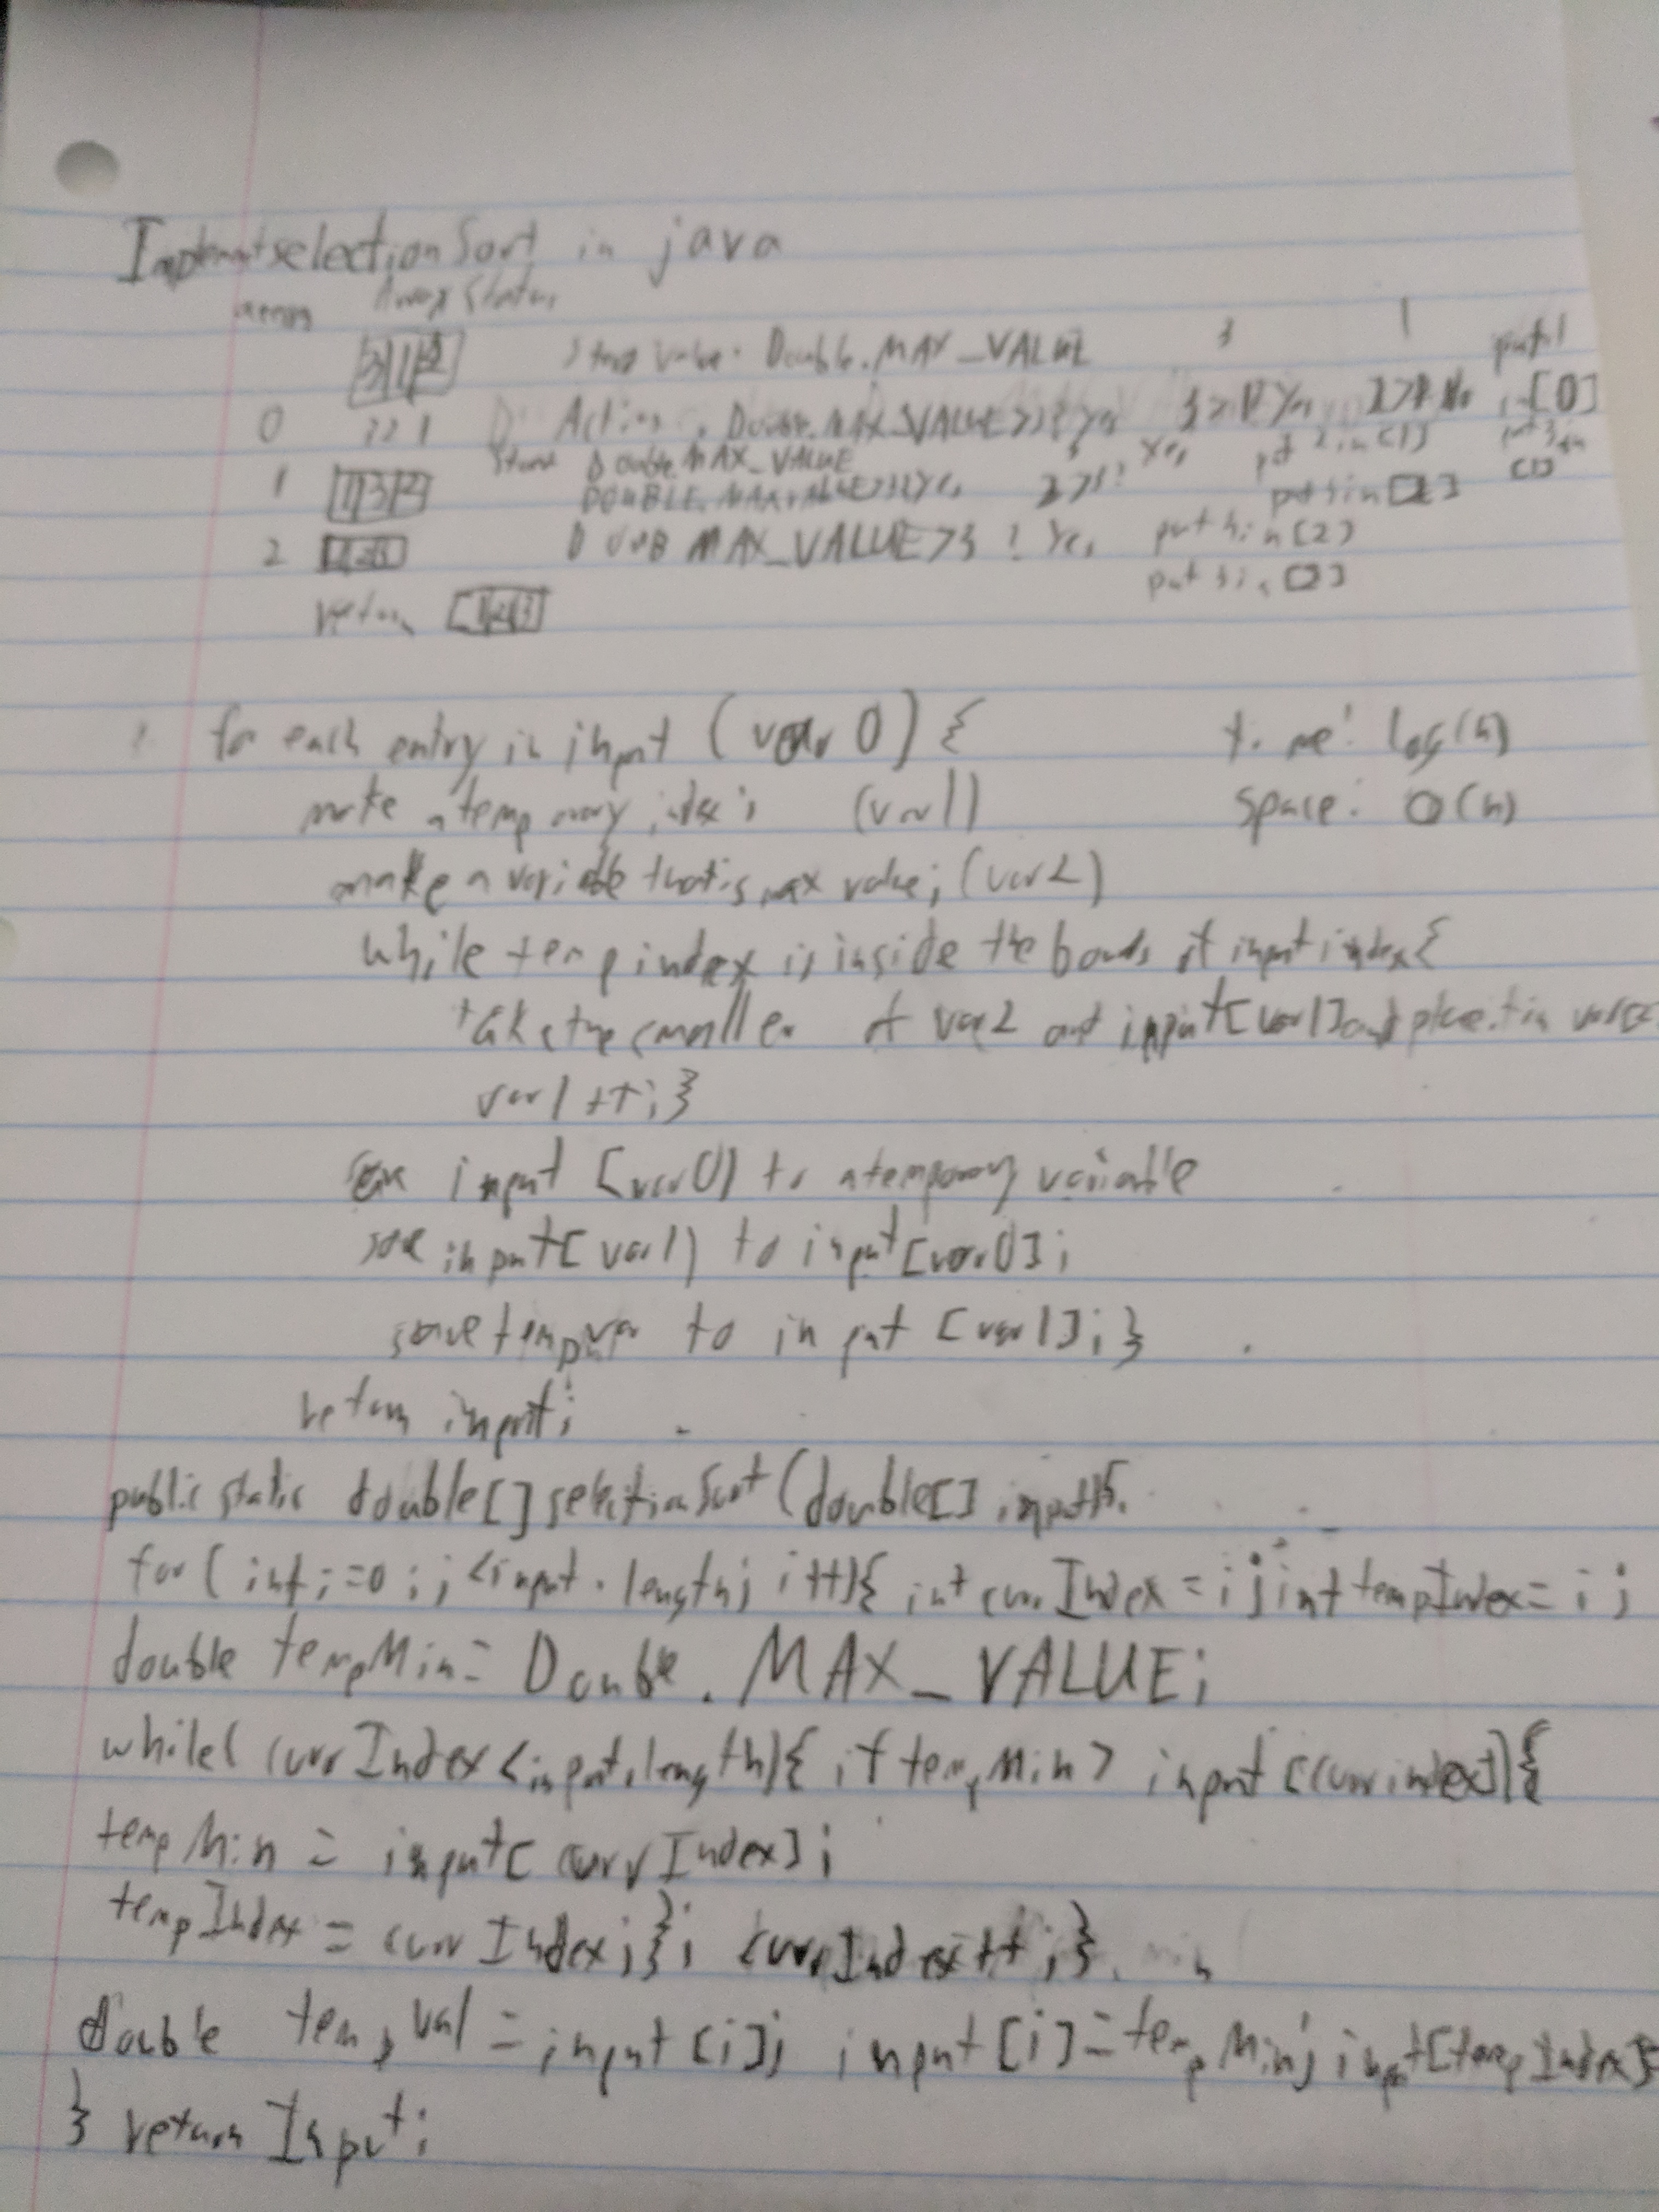 Implement selection Sort in java
Array Status
3 1 2 Start value: Double.MAX_VALUE 3 1 put 1
0 Action Double.MAX_VALUE>3? Yes 3>1? Yes in [0]
Double.MAX_VALUE Yes put 2 in [1] put 3 in
1 1 3 2 DOUBLE.MAX_VALUE>3? Yes 3>2? put 3 in [2] [1]
2 1 2 3 MAX_VALUE>3 ? Yes put 3 in [2]
put 3 in [2]
return [1 2 3]
for each entry in input (var 0) { time: log(n)
make a temporary index; (var 1) space: O(n)
make a variable that is max value; (var 2)
while temp index is inside the bounds of input index{
take the smaller of var2 and input[var1] and place it in
var1 ++;}
save input [var0) to a temporary variable
save input[var1) to input[var0];
save temp var to input [var1];}
return input;
public static double[] selectionSort (double[] input){
for (int i=0; i<input.length; i++){ int currIndex = i; int tempIndex = i;
double tempMin= Double.MAX_VALUE;
while( currIndex <input.length){ if tempMin > input [currindex]){
tempMin = input[ currIndex];
tempIndex = currIndex;}; currIndex++;}
double tempval = input [i]; input [i]=tempMin; input[tempIndex]
} return Input;